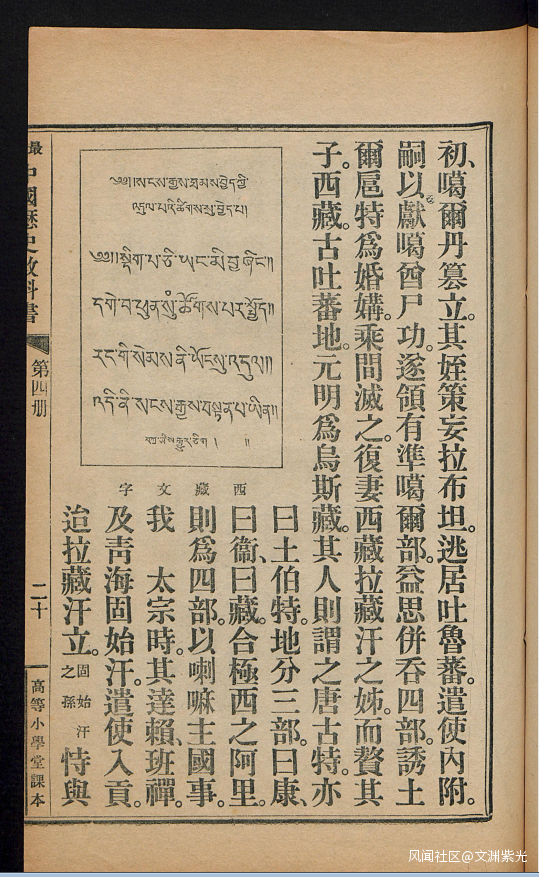 初、噶爾丹篡立。其姪策妄拉布坦。逃居吐魯蕃。遣使內附。
嗣以獻噶酋尸功。遂領有準噶爾部。益思併吞四部。誘土
爾扈特爲婚媾。乘間滅之。復妻西藏拉藏汗之姊。而贅其
子。西藏。古吐蕃地。元明爲烏斯藏。其人則謂之唐古特。亦
༄༅།།སྡིག་པ་ཅི་ཡང་མི་བྱ་ཞིང།།
དགེ་བ་ཕུན་སུཾ་ཚོགས་པར་སྤྱོད།།
རང་གི་སེམས་ནི་ཡོངསུ་འདུལ།།
འདི་ནི་སངས་རྒྱས་བསྟན་པ་ཡིན།།
西藏文字
曰土伯特。地分三部。曰康、
曰衞、曰藏。合極西之阿里。
則爲四部。以喇嘛主國事。
我 太宗時。其達賴、班禪。
及靑海固始汗。遣使入貢。
迨拉藏汗立。固始汗之孫 恃與
最 中國歷史敎科書 第四册 二十 高等小學堂課本
风闻社区@文渊紫光